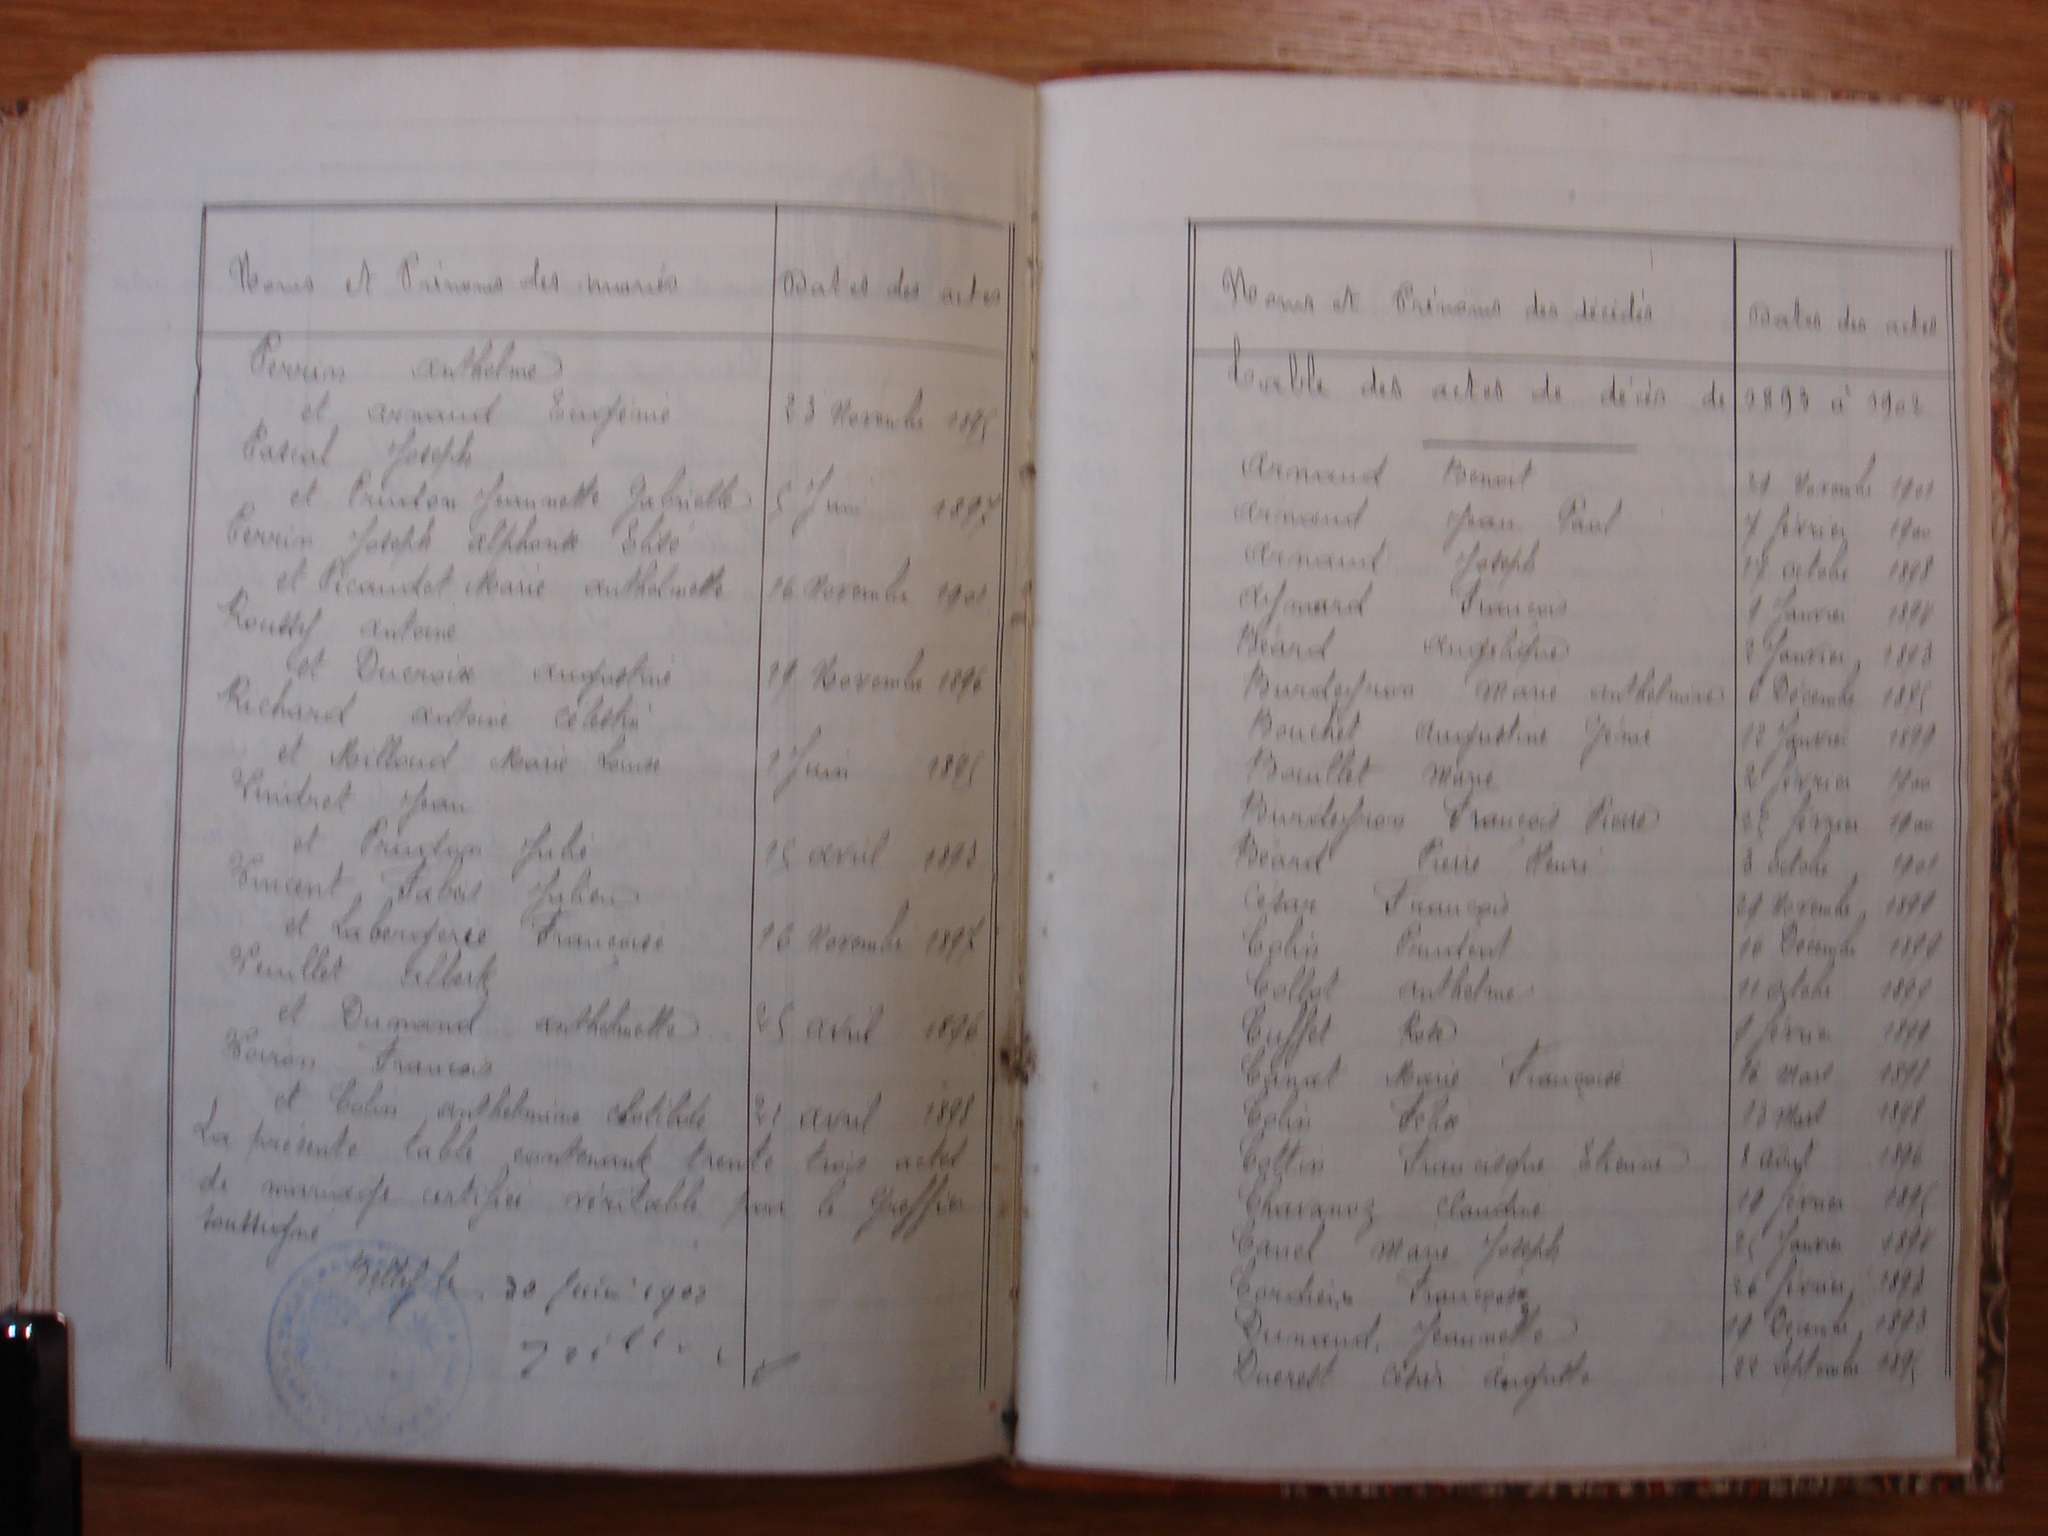 Noms et Prénoms des mariés Dates des actes
Perrin Anthelme
et Armand Eugénie 23 Novembre 1895
Pascal Joseph
et Prudon Jeannette Gabrielle 5 Juin 1897
Perrin Joseph Alphonse Elisé
et Picaudet Marie Anthelmette 16 Novembre 1901
Roussy Antoine
et Ducroix Augustine 19 Novembre 1896
Richard Antoine Célestin
et Milloud Marie Louise 1 Juin 1895
Vindret Jean
et Prudon Julie 15 Avril 1893
Vincent Fabus Julien
et Françoise 16 Novembre 1897
Veuillet Albert
et Dumand Anthelmette 25 Avril 1896
Voiron François
et Colin Anthelmine Clotilde 21 Avril 1898
La présente table contenant trente trois actes
de mariage certifiée véritable par le Greffier
soussigné
Belley le 30 Juin 1903
Noms et Prénoms des décédés Dates des actes
Table des actes de décès de 1893 à 1902
Armand Benoit 29 Novembre 1901
Armand Jean Paul 7 février 1900
Armand Joseph 17 octobre 1898
Aymard François 1 Janvier
Béard Angélique 2 Janvier 1893
Burdeyron Marie Anthelmine 6 Décembre 1895
Bouchet Augustine Génie 12 Janvier 1899
Bouillet Marie 2 février 1900
Burdeyron François Pierre février 1900
Béard Pierre Henri 3 octobre 1901
César François 29 Novembre 1899
Colin Prudent 10 Décembre 1899
Collot Anthelme 11 octobre 1899
Cuffet Rose février
Canat Marie Françoise 16 Mars 1898
Colin Félix 13 Mars 1898
Cottin Francisque Etienne 8 Août 1896
Chavanoz Claudine 19 février 1895
Carrel Marie Joseph 25 Janvier
Cordier Françoise 26 février 1893
Dumand Jeannette 19 Décembre 1893
Ducrest César Auguste 22 Septembre 1895